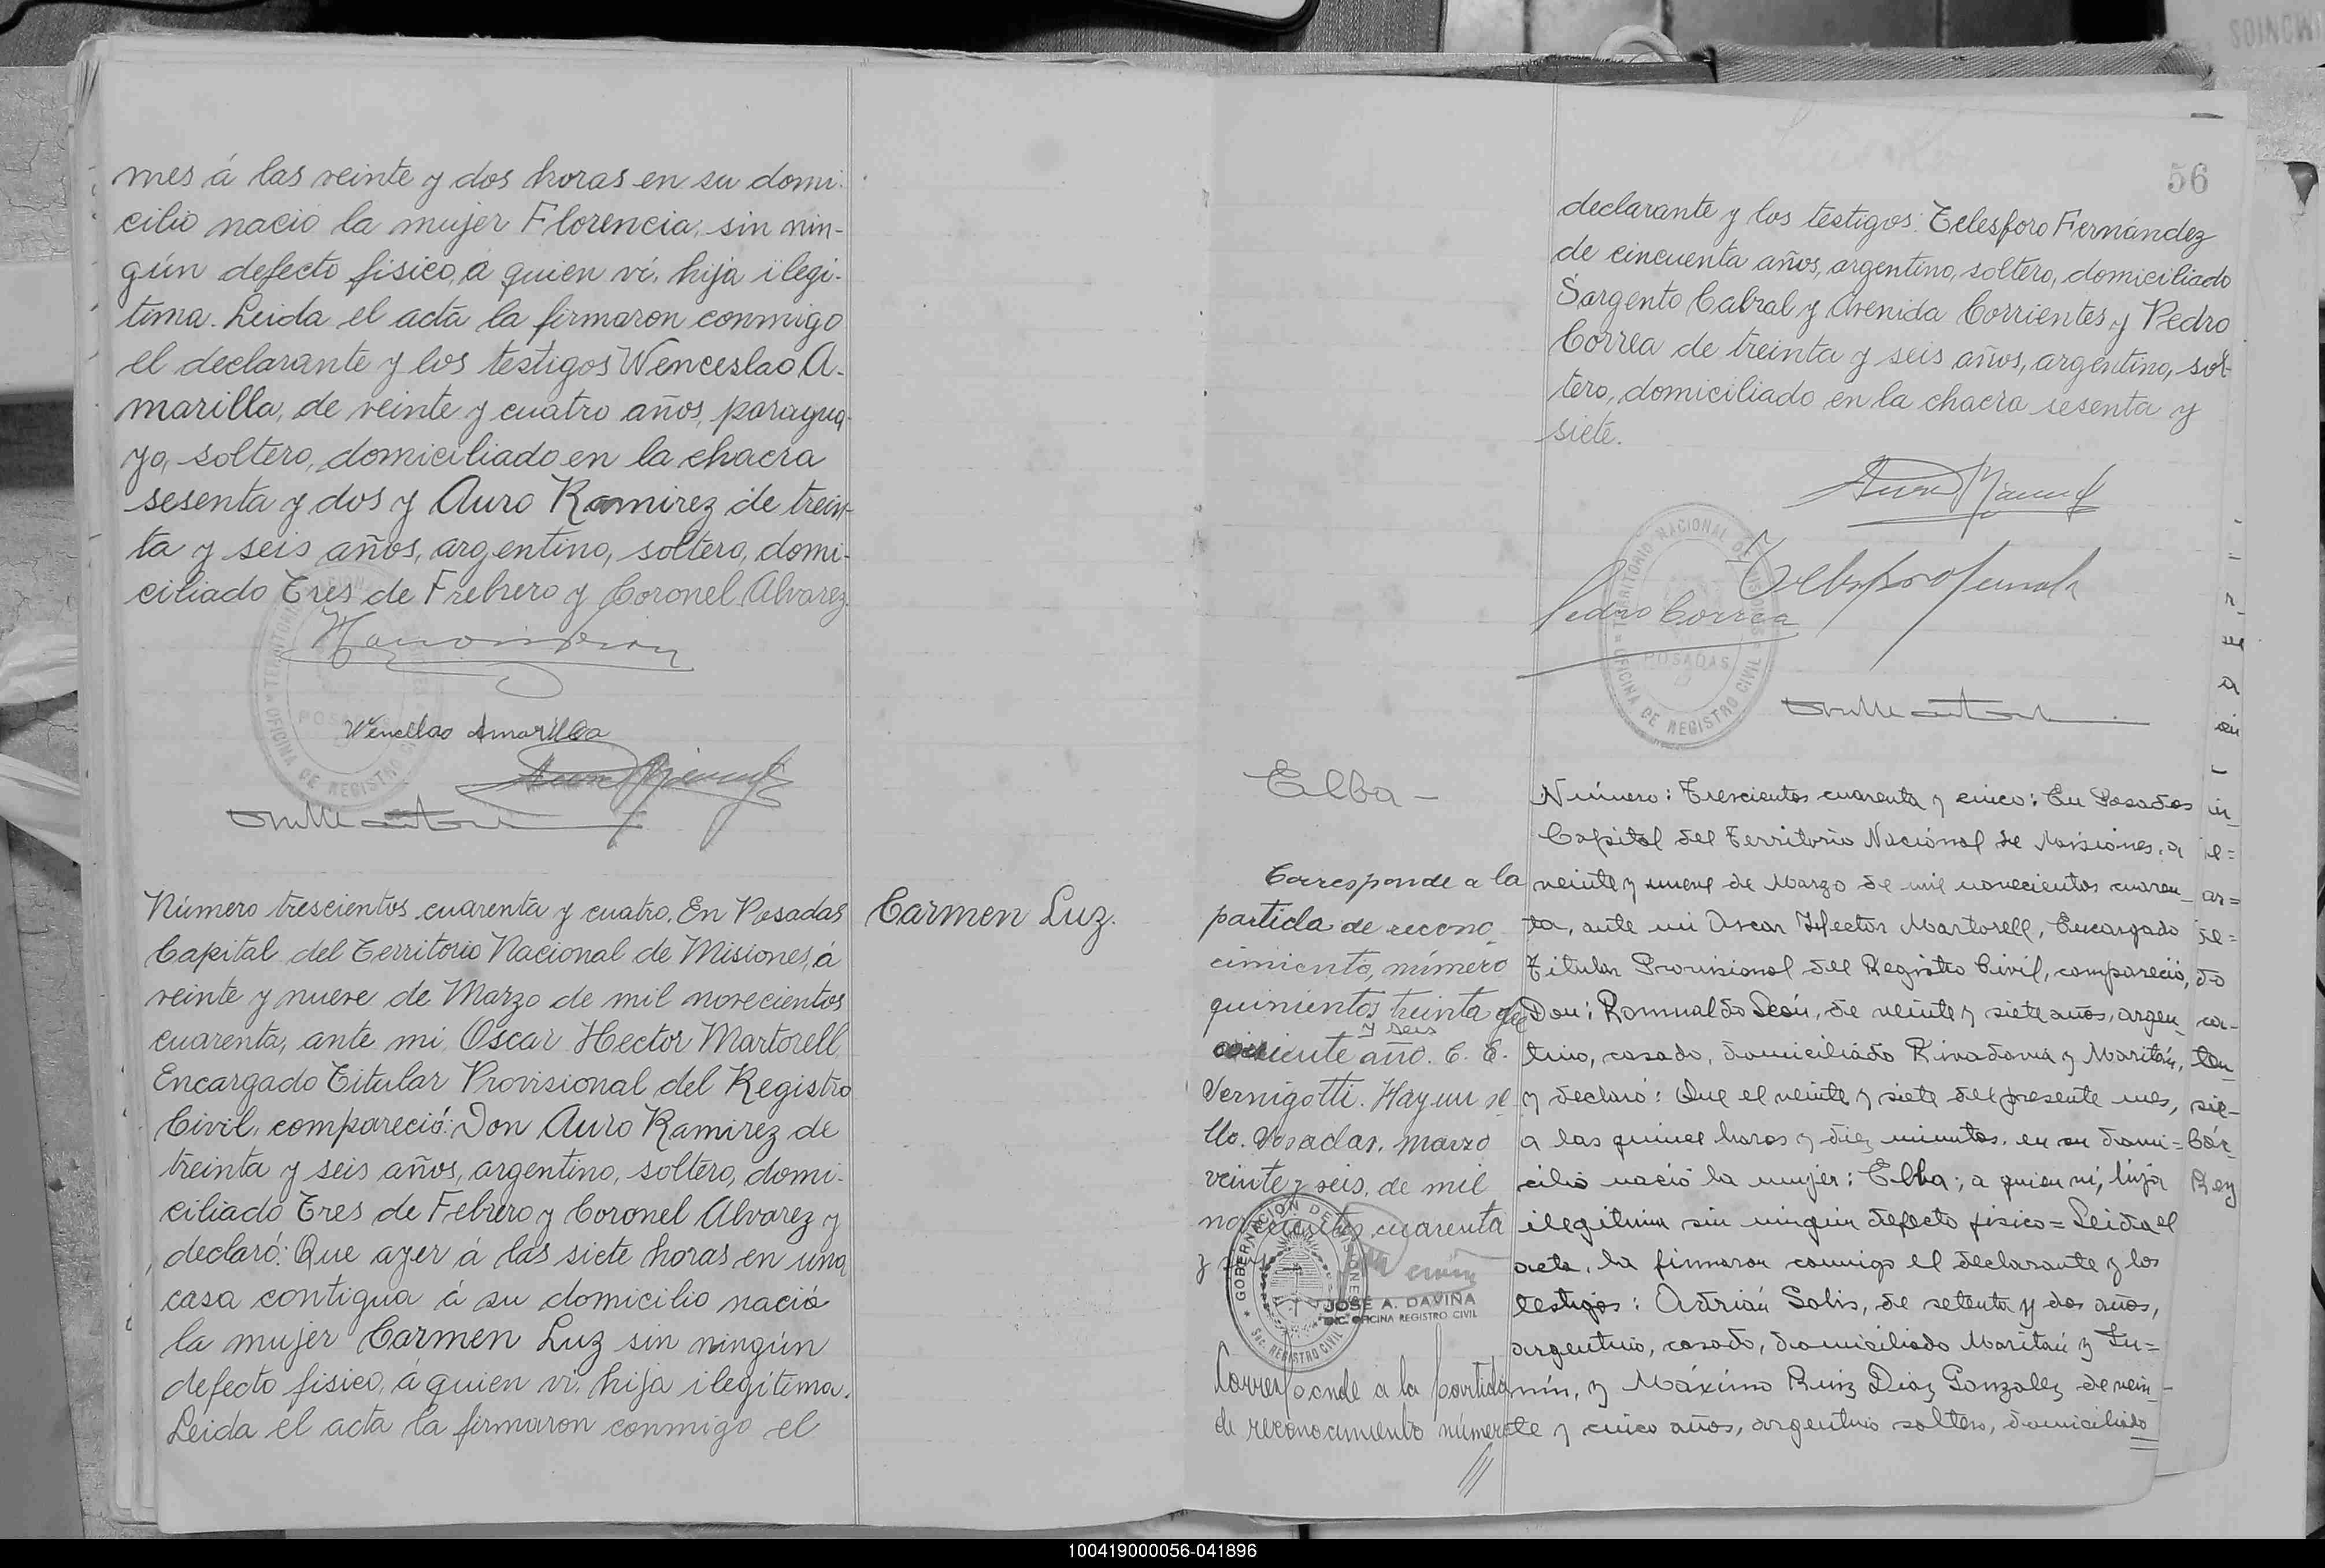 mes á las veinte y dos horas en su domi-
cilio nació la mujer Florencia, sin nin-
gún defecto fisico, á quien ví, hija ilegi-
tima. Leida el acta la firmaron conmigo
el declarante y los testigos Wenceslao A-
marilla, de veinte y cuatro años, paragua-
yo, soltero, domiciliado en la chacra
sesenta y dos y Auro Ramirez de trein-
ta y seis años, argentino, soltero, domi-
ciliado Tres de Frebrero y Coronel Alvarez.
POSADAS
OFICINA DE REGISTRO CIVIL
Wencellao Amarilla
Número trescientos cuarenta y cuatro, En Posadas
Capital del Territorio Nacional de Misiones, á
veinte y nueve de Marzo de mil novecientos
cuarenta, ante mi Oscar Hector Martorell
Encargado Titular Provisional del Registro
Civil, compareció: Don Auro Ramirez de
treinta y seis años, argentino, soltero, domi-
ciliado Tres de Febrero y Coronel Alvarez y
declaró: Que ayer á las siete horas en una
casa contigua á su domicilio nació
la mujer Carmen Luz sin ningún
defecto fisico, á quien ví, hija ilegítima.
Leida el acta la firmaron conmigo el
Carmen Luz.
56
declarante y los testigos: Telesforo Fernández
de cincuenta años, argentino, soltero, domiciliado
Sargento Cabral y Avenida Corrientes y Pedro
Correa de treinta y seis años, argentino, sol-
tero, domiciliado en la chacra sesenta y
siete.
Pedro Correa
TERRITORIO NACIONAL DE MISIONES
POSADAS
OFICINA DE REGISTRO CIVIL
Elba -
Corresponde a la
partida de recono-
cimiento, número
quinientos treinta
y seis
año. C. E.
Vernigotti. Hay un se
llo. Posadas, marzo
veinte y seis, de mil
novecientos cuarenta
y
GOBERNACION DE MISIONES
SEC. REGISTRO CIVIL
JOSÉ A. DAVIÑA
ENC. OFICINA REGISTRO CIVIL
Corresponde a la partida
de reconocimiento número
Número: Trescientos cuarenta y cinco: En Posadas
Capital del Territorio Nacional de Misiones, a
veinte y nueve de Marzo de mil novecientos cuaren-
ta, ante mi Oscar Hector Martorell, Encargado
Titular Provisional del Registro Civil, compareció,
Don: Romualdo León, de veinte y siete años, argen-
tino, casado, domiciliado Rivadavia y Maritán,
y declaró: Que el veinte y siete del presente mes,
a las quince horas y diez minutos, en su domi=
cilio nació la mujer: Elba; a quien ví, hija
ilegitima sin ningún defecto fisico = Leida el
acta, la firmaron conmigo el declarante y los
testigos: Adrián Solis, de setenta y dos años,
argentino, casado, domiciliado Maritán y Ju=
nín, y Máximo Ruiz Diaz Gonzalez de vein-
te y cinco años, argentino soltero, domiciliado